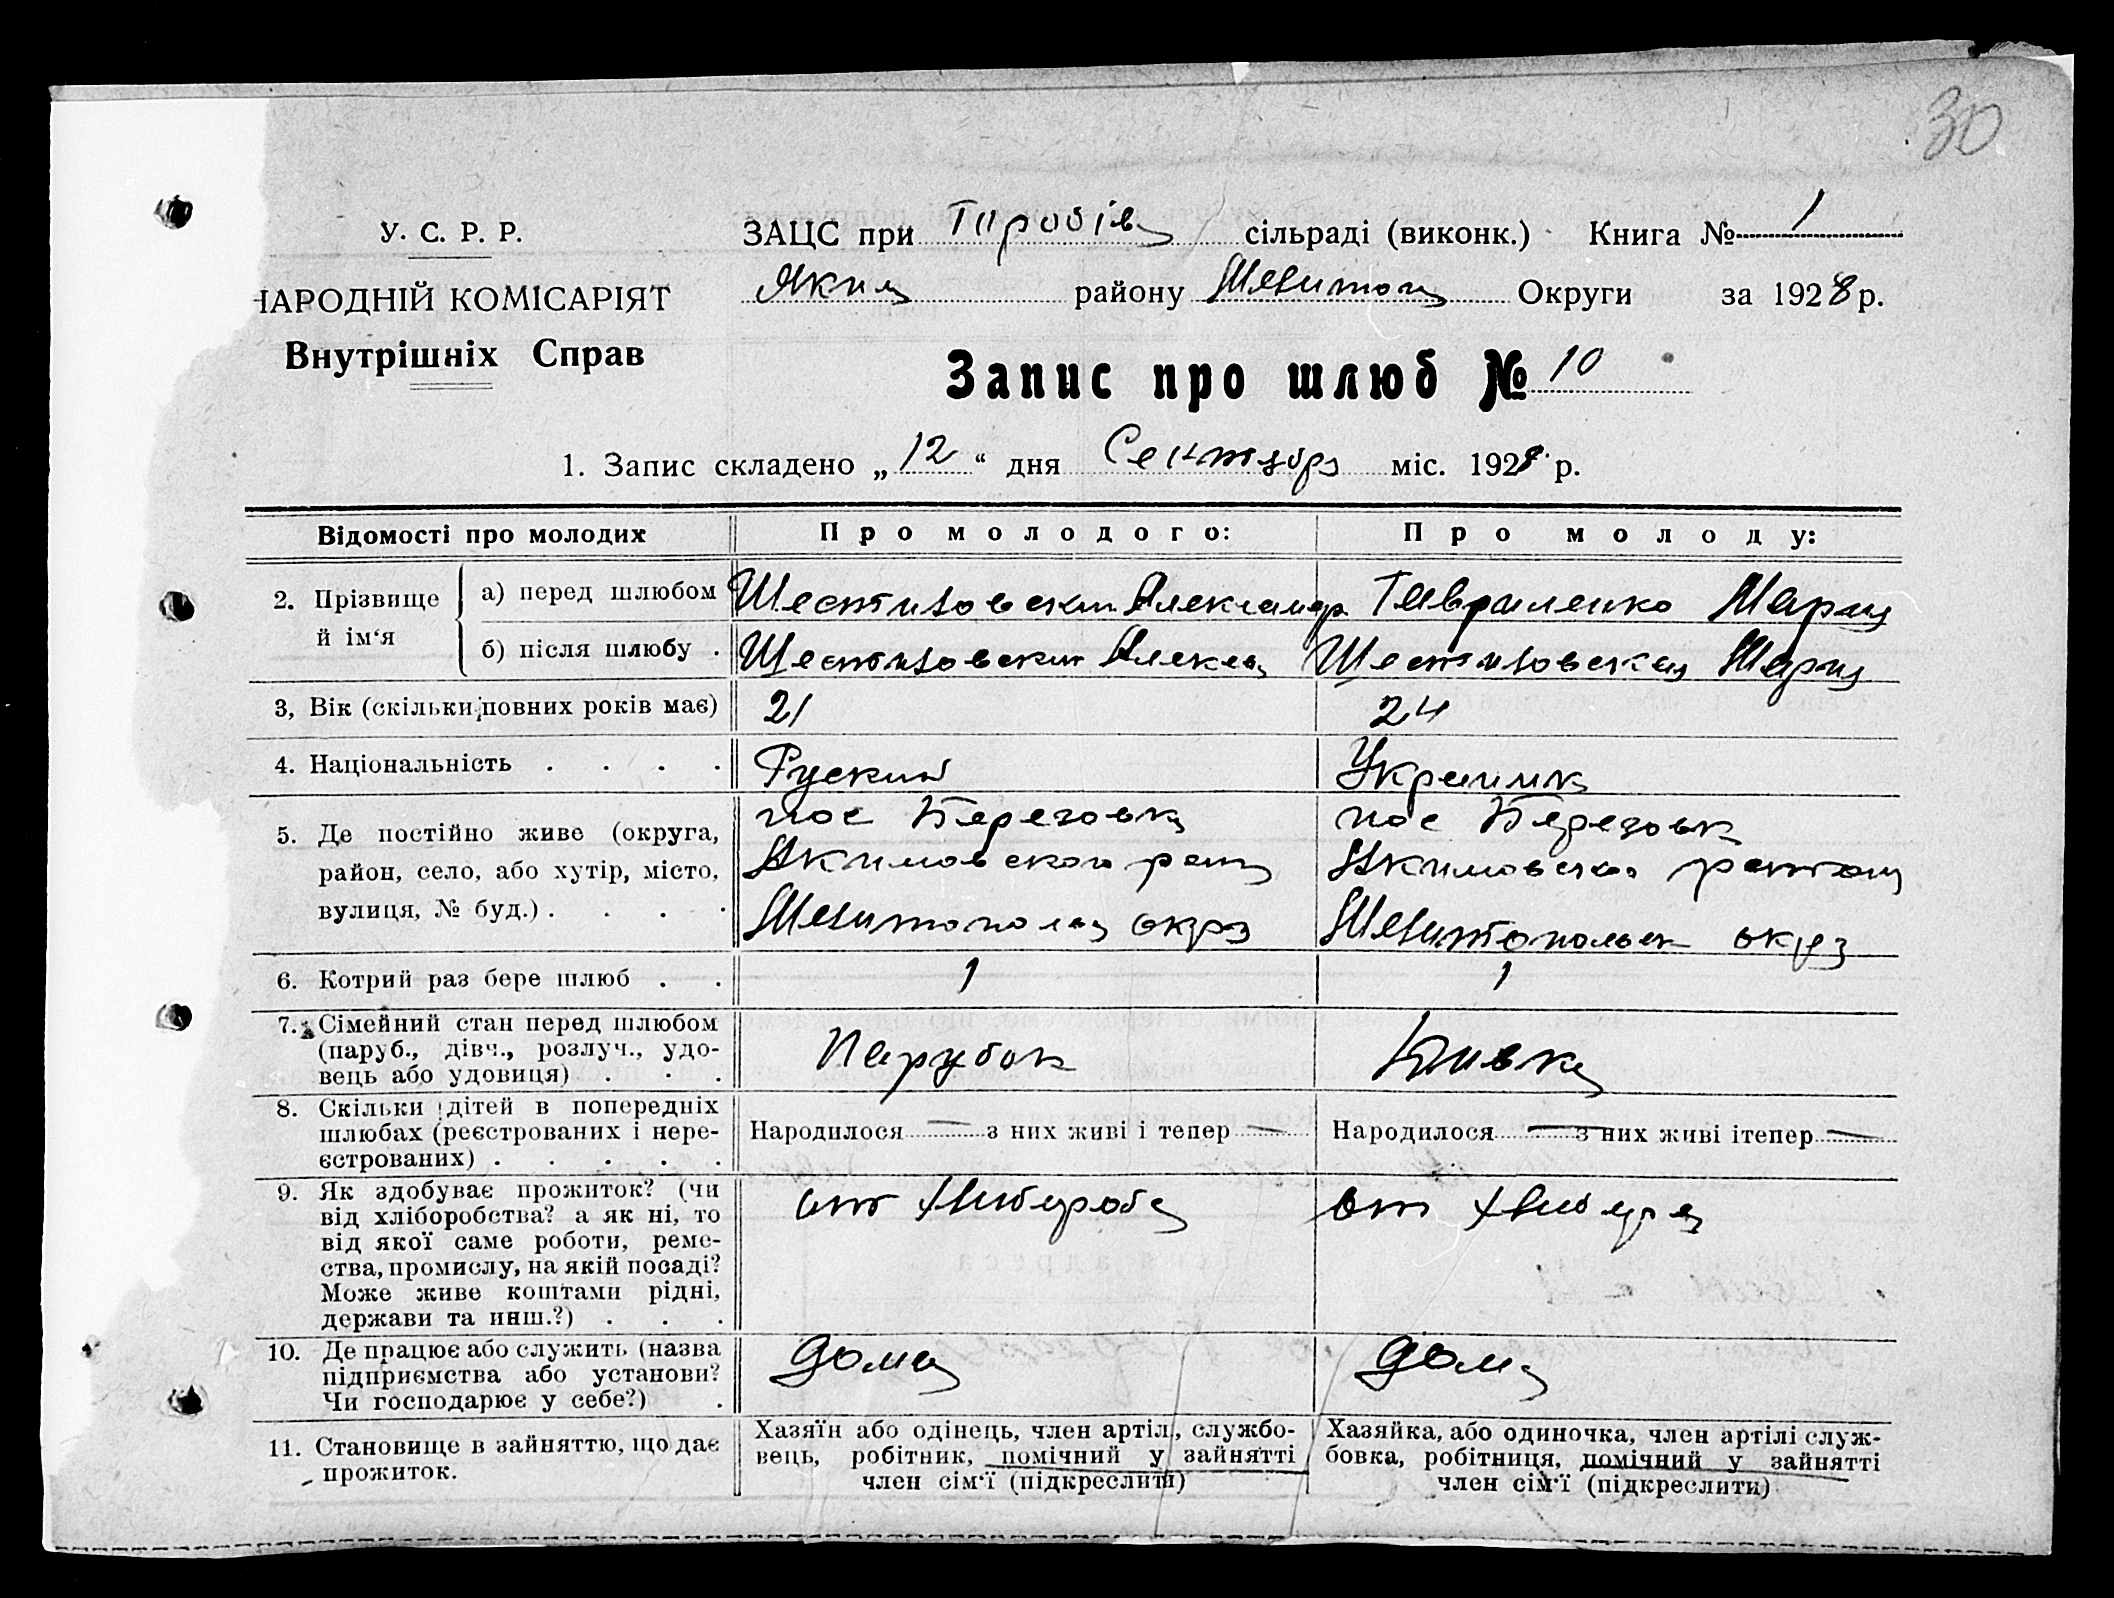 30
У. С. Р. Р.
НАРОДНІЙ КОМІСАРІЯТ
Внутрішніх Справ
ЗАЦС при сільраді (виконк.) Книга № 1
Яким району Мелитоп Округи за 1928 р.
Запис про шлюб № 10
1. Запис складено „ 12 “ дня Сентября міс. 1928 р.
Відомості про молодих Про молодого: Про молоду:
2. Прізвище й ім‘я
а) перед шлюбом Александр Гавриленко Мария
б) після шлюбу . Мария
3, Вік (скільки повних років має) 21 24
4. Національність . . . . Руский Украинка
5. Де постійно живе (округа,
район, село, або хутір, місто,
вулиця, № буд.) . . . .
пос Березовка
Акимовского
Мелитопол окр
пос Березовк
Акимовско
Мелитопольск окр
6. Котрий раз бере шлюб . . 1 1
7. Сімейний стан перед шлюбом
(паруб., дівч., розлуч., удо-
вець або удовиця) . . .
Парубок Дивка
8. Скільки дітей в попередніх
шлюбах (реєстрованих і нере-
єстрованих) . . . . .
Народилося — з них живі і тепер —
Народилося — з них живі ітепер —
9. Як здобуває прожиток? (чи
від хліборобства? а як ні, то
від якої саме роботи, реме-
ства, промислу, на якій посаді?
Може живе коштами рідні,
держави та инш.?) . . .
от от
10. Де працює або служить (назва
підприємства або установи?
Чи господарює у себе?) .
дома дома
11. Становище в зайняттю, що дає
прожиток.
Хазяїн або одінець, член артіл, службо-
вець, робітник, помічний у зайнятті
член сім‘ї (підкреслити)
Хазяйка, або одиночка, член артілі служ-
бовка, робітниця, помічний у зайнятті
член сім‘ї (підкреслити)